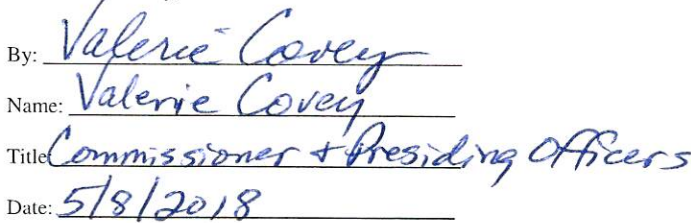 By: Valerie Covey
Name: Valerie Covey
Title Commissioner + Presiding Officers
Date: 5/8/2018